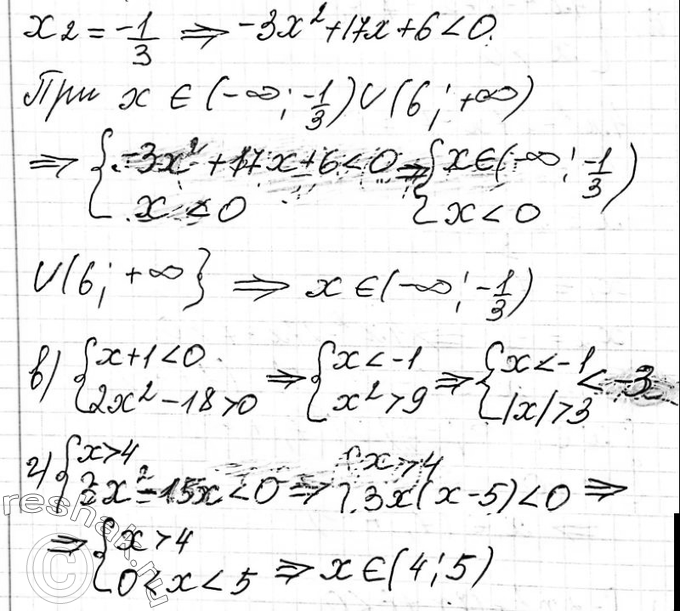 x2 = -1/3 ⇒ -3x²+17x+6<0.
При x ∈ (-∞; -1/3) ∪ (6; +∞)
⇒ { -3x²+17x+6<0 ⇒ { x∈(-∞; -1/3)
x<0 { x<0
∪(6; +∞} ⇒ x∈(-∞; -1/3)
в) { x+1<0 ⇒ { x<-1 ⇒ { x<-1 < -3
2x²-18>0 x²>9 |x|>3
г) { x>4 { x>4
3x²-15x<0 ⇒ 3x(x-5)<0 ⇒
⇒ { x>4
0<x<5 ⇒ x∈(4; 5)
reshak.ru